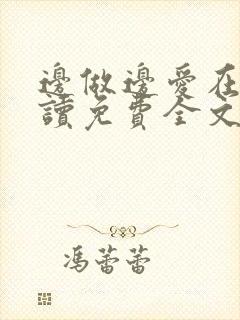 邊做邊愛在
讀免費全文
馮蕾蕾